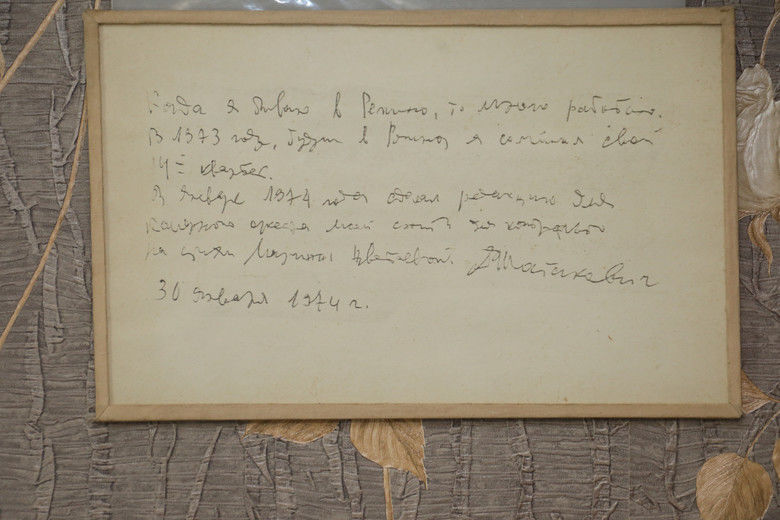 Когда я бываю в Репино, то много работаю.
В 1973 году, будучи в Репино, я сочинил свой
14й квартет.
В январе 1974 года сделал редакцию для
камерного оркестра моей сюиты для контральто
на стихи Марины Цветаевой. Д Шостакович
30 января 1974 г.